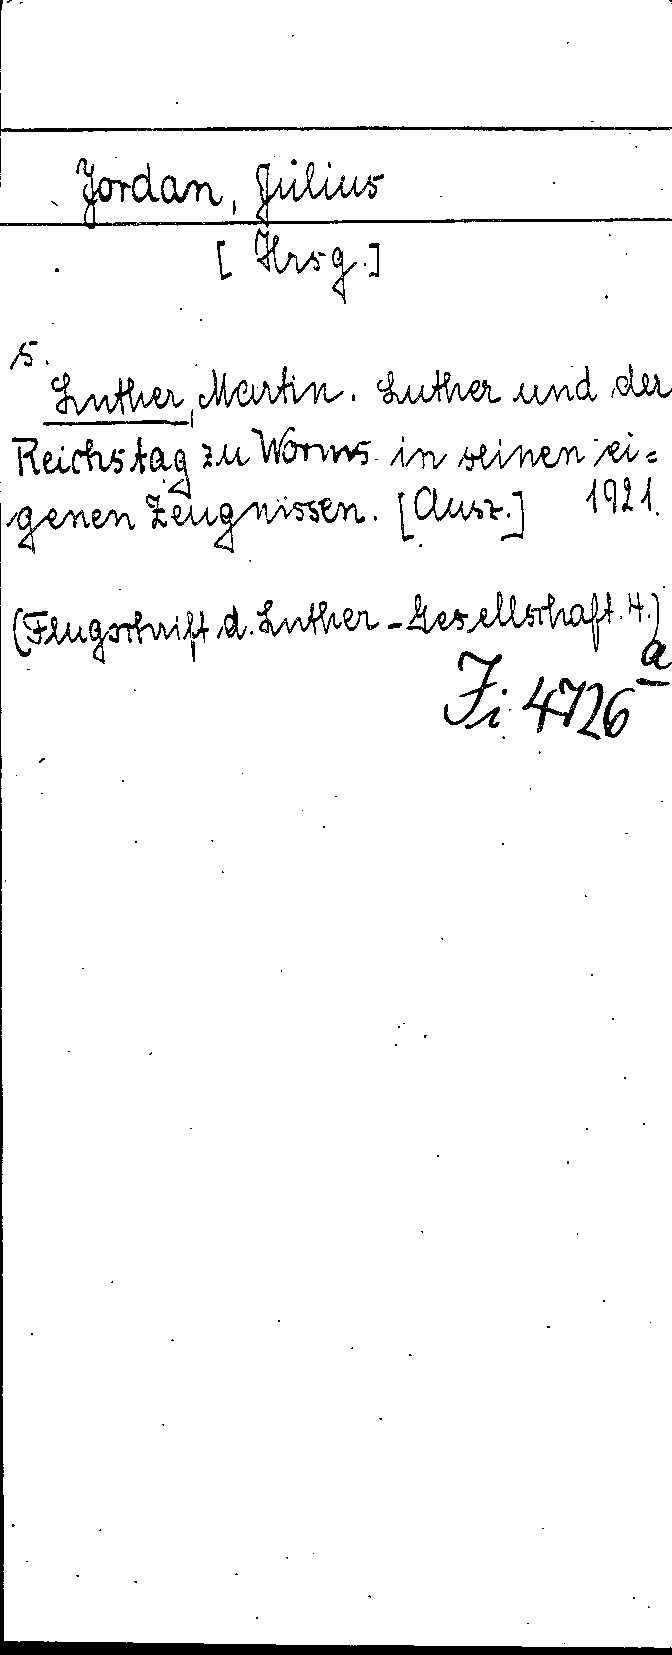 Jordan, Julius
[Hrsg.]
s.
Luther, Martin. Luther und der
Reichstag zu Worms in seinen ei=
genen Zeugnissen. [Ausz.] 1921.
(Flugschrift d. Luther-Gesellschaft. 4.)
Fi 4726 a